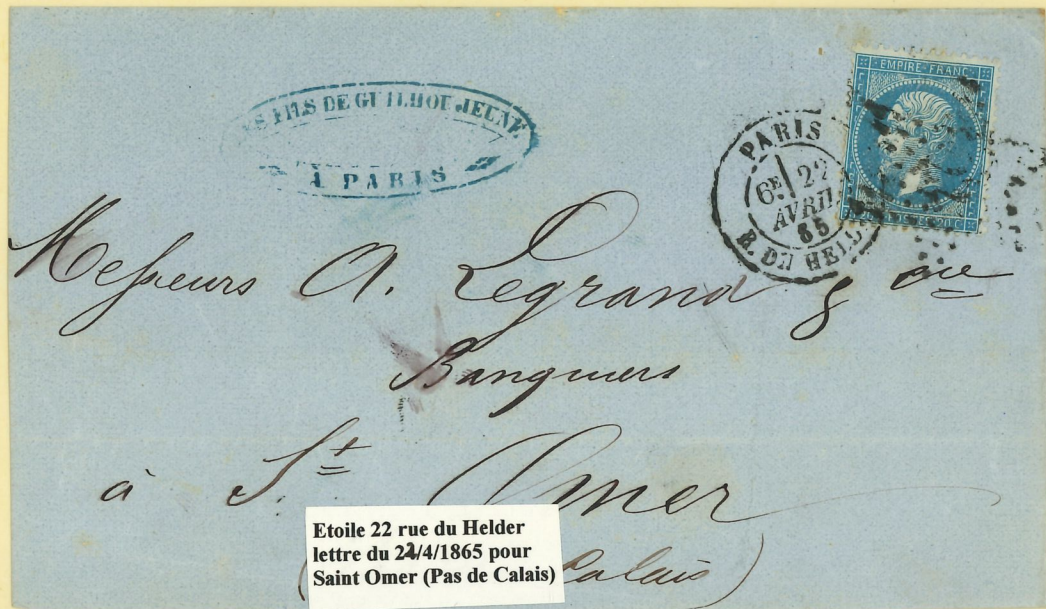 LES FILS DE GUILHOU JEUNE
A PARIS
EMPIRE FRANC
20 C
PARIS
6E 22
AVRIL
65
R. DU HELD
Messieurs A. Legrand & Cie
Banquiers
à St Omer
Calais)
Etoile 22 rue du Helder
lettre du 22/4/1865 pour
Saint Omer (Pas de Calais)